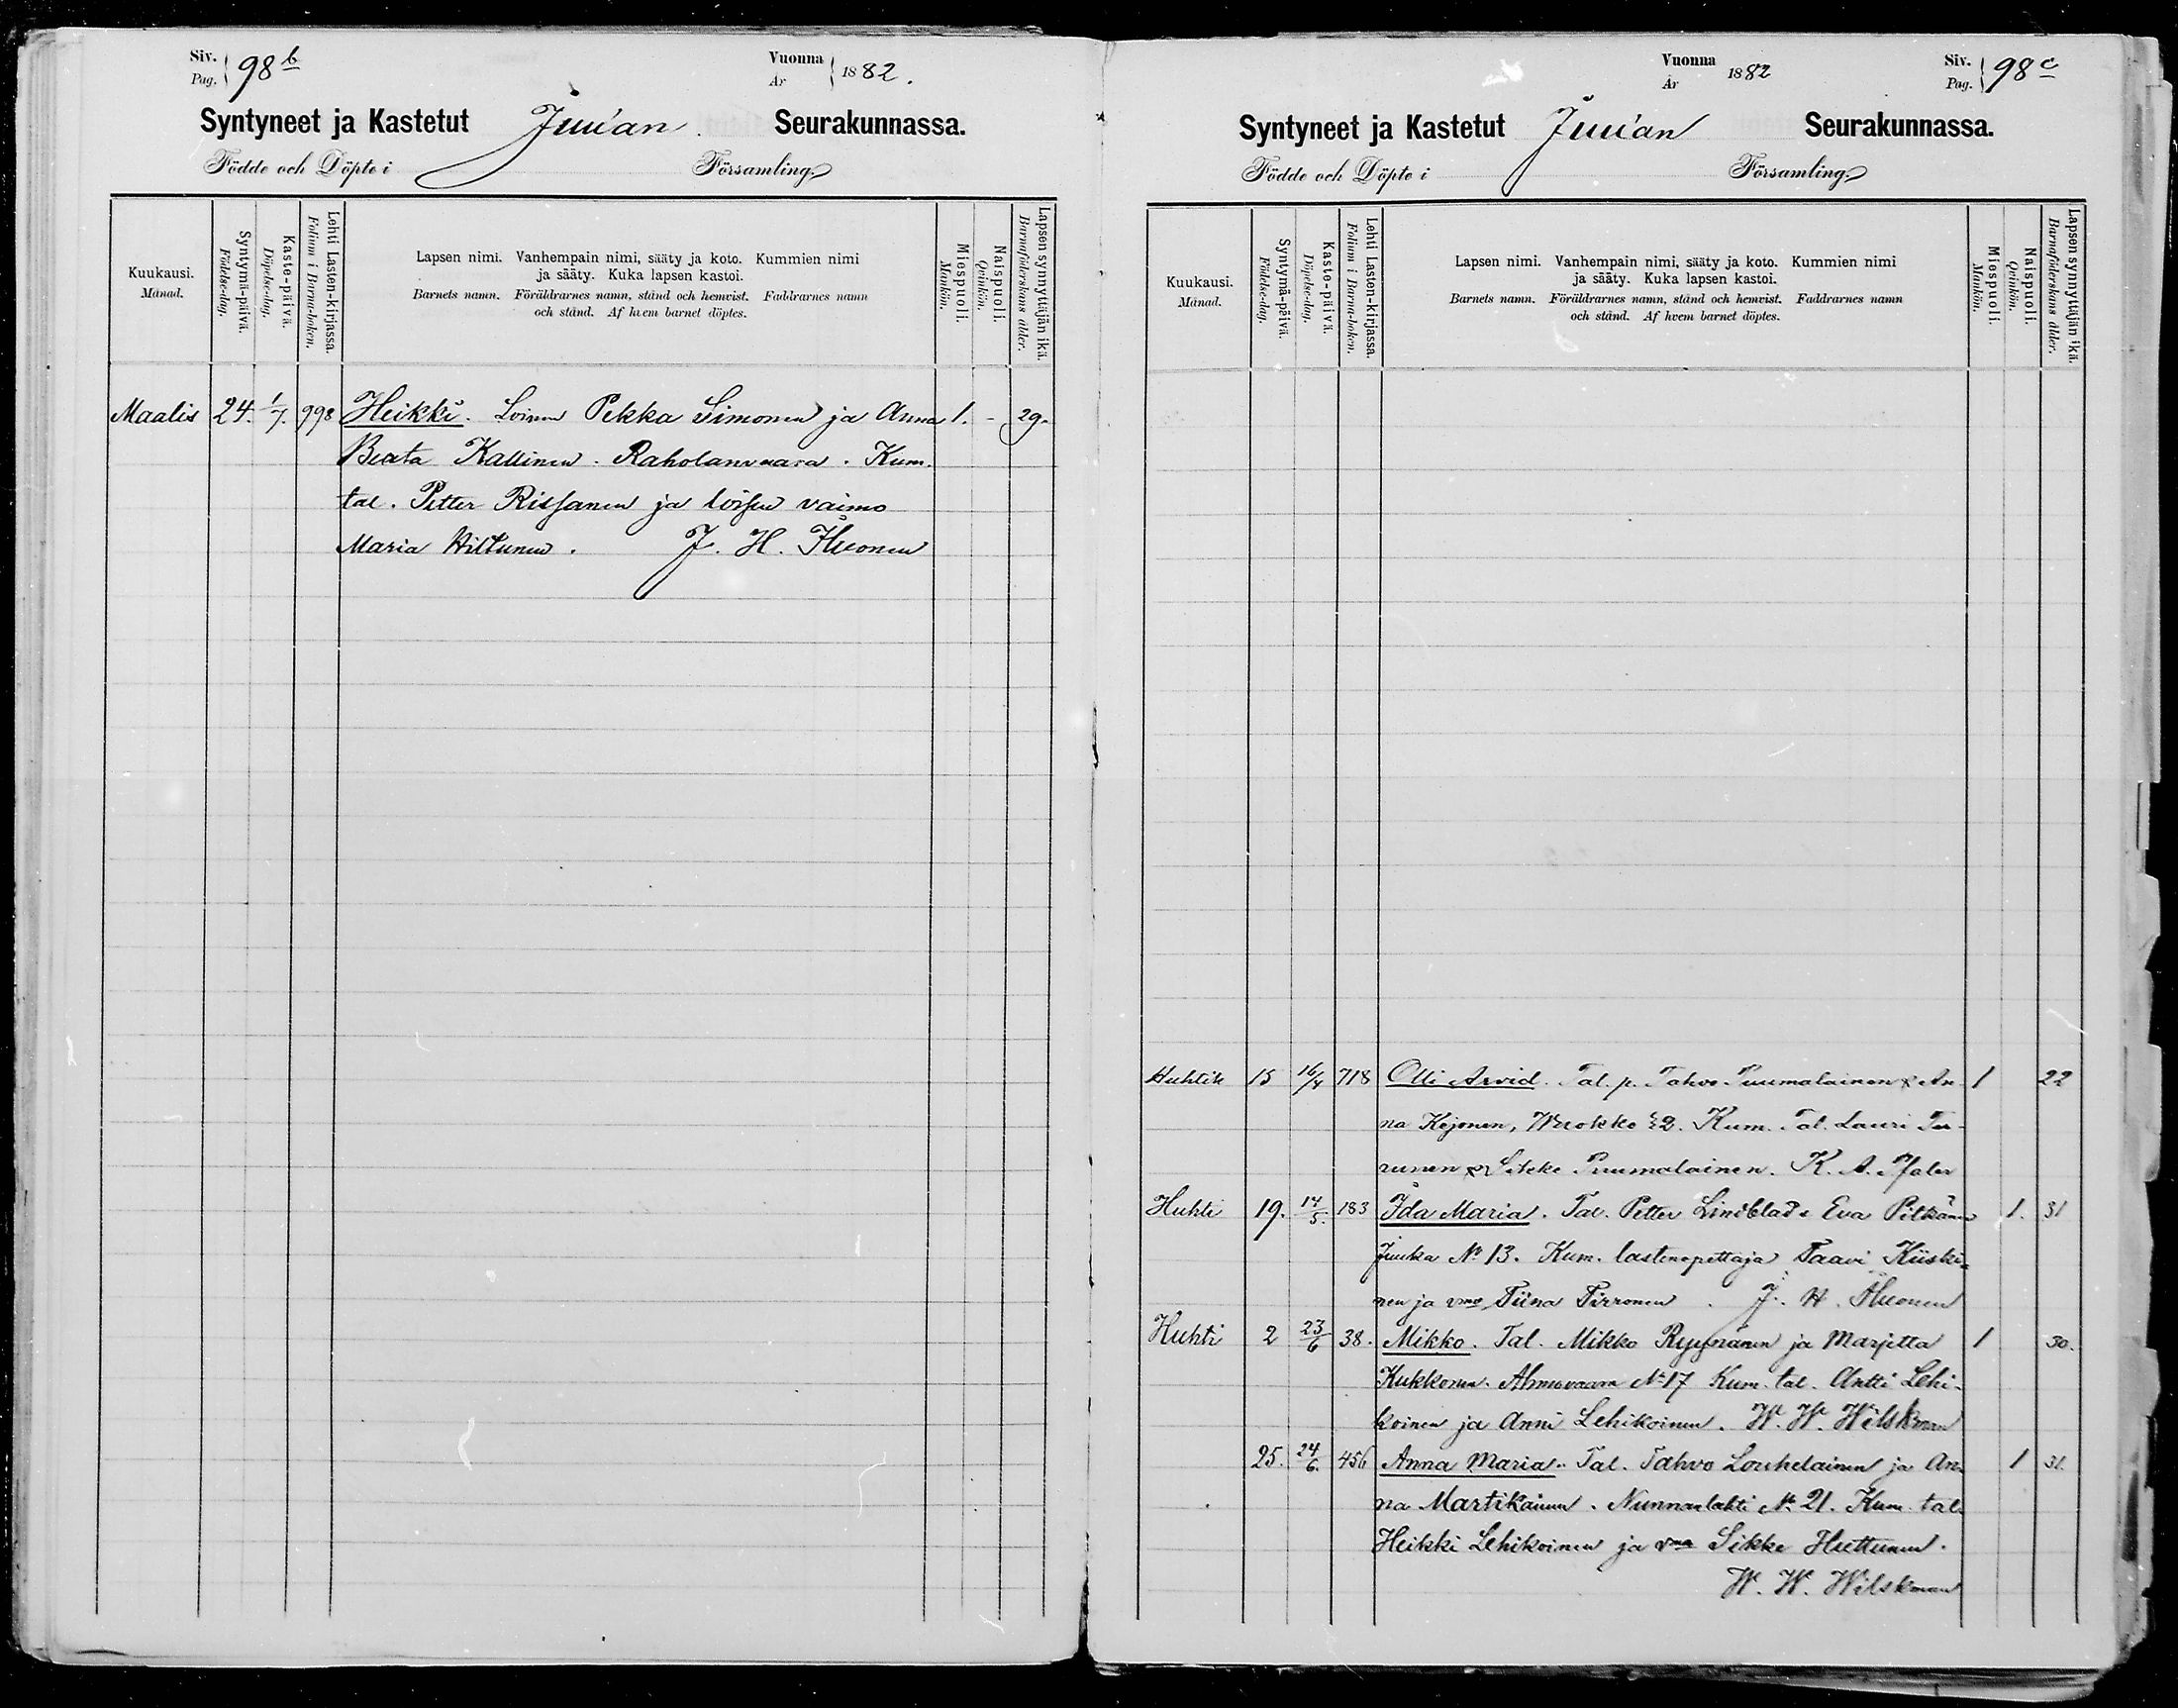 Siv. Pag. 98 b
Vuonna År 1882.
Syntyneet ja Kastetut Juuan Seurakunnassa.
Födde och Döpte i Församling
Kuukausi. Månad.
Syntymä-päivä. Födelse-dag.
Kaste-päivä. Döpelse-dag.
Lehti Lasten-kirjassa. Folium i Barna-boken.
Lapsen nimi. Vanhempain nimi, sääty ja koto. Kummien nimi
ja sääty. Kuka lapsen kastoi.
Barnets namn. Föräldrarnes namn, stånd och hemvist. Faddrarnes namn
och stånd. Af hvem barnet döptes.
Miespuoli. Mankön.
Naispuoli. Qvinkön.
Lapsen synnyttäjän ikä. Barnaföderskans ålder.
Maalis 24. 1/7. 998 Heikki. Loinen Pekka Simonen ja Anna 1. - 29.
Beata Kallinen. Raholanvaara. Kum.
tal. Petter Rissanen ja loisen vaimo
Maria Hiltunen. J. H.
Vuonna År 1882
Siv. Pag. 98 c
Syntyneet ja Kastetut Juuan Seurakunnassa.
Födde och Döpte i Församling
Kuukausi. Månad.
Syntymä-päivä. Födelse-dag.
Kaste-päivä. Döpelse-dag.
Lehti Lasten-kirjassa. Folium i Barna-boken.
Lapsen nimi. Vanhempain nimi, sääty ja koto. Kummien nimi
ja sääty. Kuka lapsen kastoi.
Barnets namn. Föräldrarnes namn, stånd och hemvist. Faddrarnes namn
och stånd. Af hvem barnet döptes.
Miespuoli. Mankön.
Naispuoli. Qvinkön.
Lapsen synnyttäjän ikä. Barnaföderskans ålder.
Huhtik 15 16/4 718 Olli Arvid. Tal. p. Tahvo Puumalainen & An- 1 22
na Kejonen, Wuokko 2. Kum. Tal. Lauri Tu-
runen & Sikke Puumalainen. K. A. Pfaler
Huhti 19. 14/5. 183 Ida Maria. Tal. Petter Lindblad & Eva Pitkänen 1. 31
Juuka No 13. Kum. lastenopettaja Taavi Kiiski-
nen ja vmo Tiina Tirronen. J. H.
Huhti 2 23/6 38. Mikko. Tal. Mikko Ryynänen ja Marjetta 1 30.
Kukkonen. Ahmovaara No 17 Kum. tal. Antti Lehi-
koinen ja Anni Lehikoinen. W. W. Wilskman
25. 24/6. 456 Anna Maria. Tal. Tahvo Louhelainen ja An- 1 31.
na Martikainen. Nunnanlahti No 21. Kum. tal.
Heikki Lehikoinen ja vmo Sikke Huttunen.
W. W. Wilskman